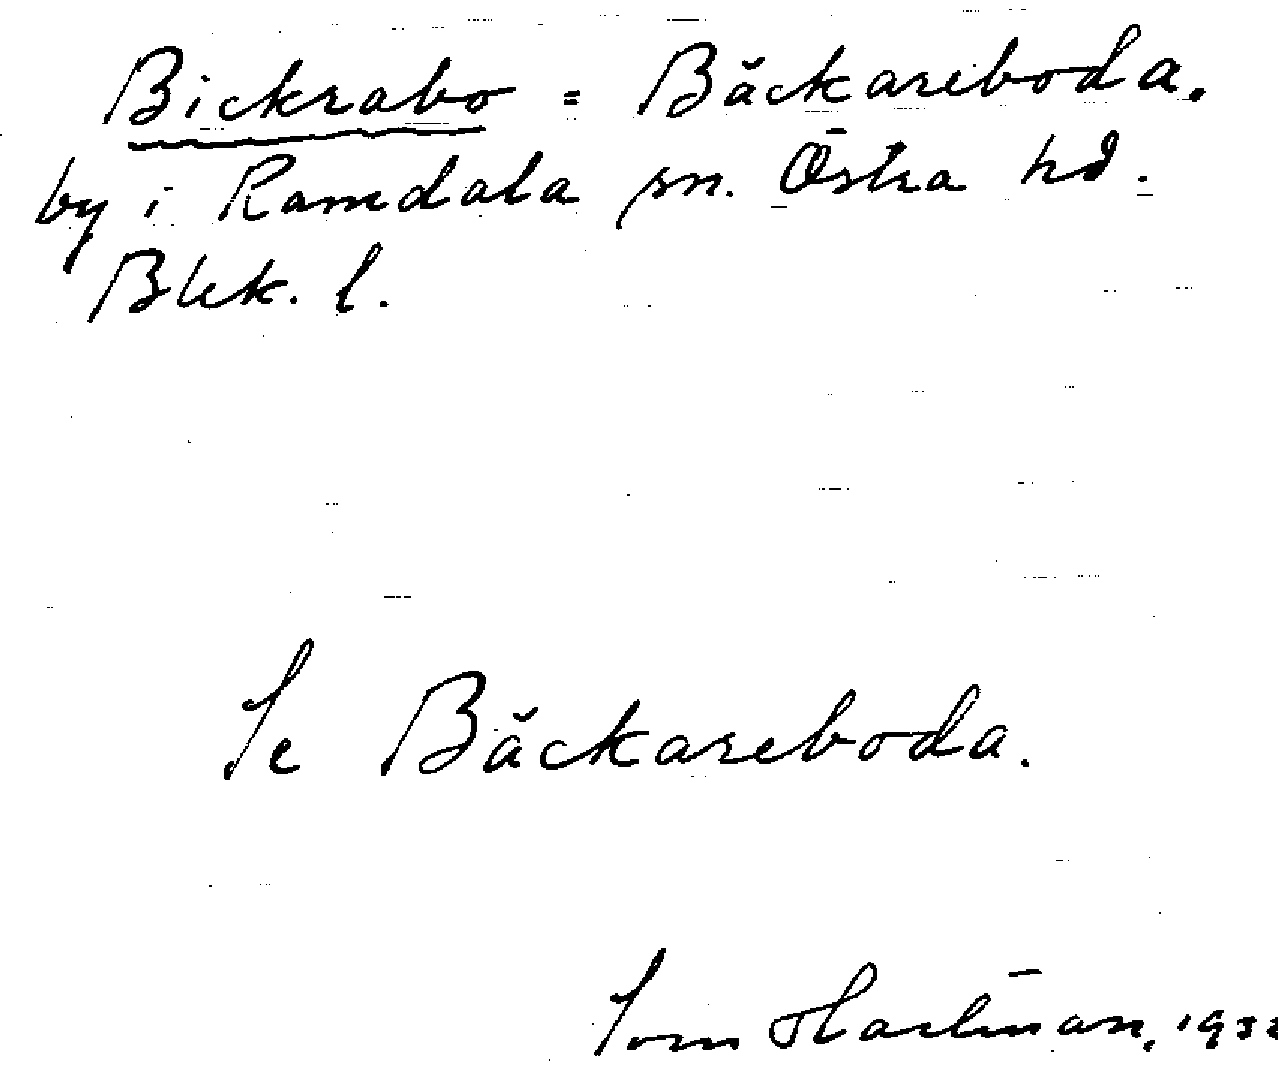 Bickrabo = Bäckareboda.
by i Ramdala sn. Östra hd.
Blek. l.
Se Bäckareboda.
Tom Hartman, 1932